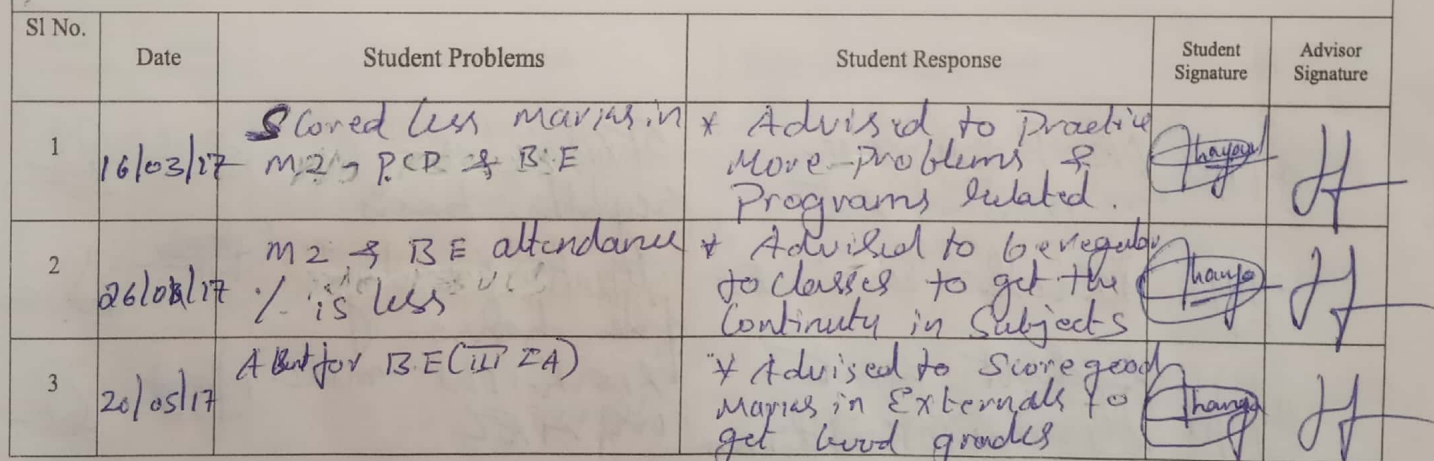 Sl No. Date Student Problems Student Response Student Signature Advisor Signature
1 16/03/17 Scored less marks in
M2, PCD & BE
* Advised to Practice
More Problems &
Programs related.
2 26/04/17 M2 & BE attendance
% is less
* Advised to be regular
to classes to get the
Continuty in Subjects
3 20/05/17 Abent for BE (III IA)
* Advised to Score good
Marks in Externals to
get Good grades